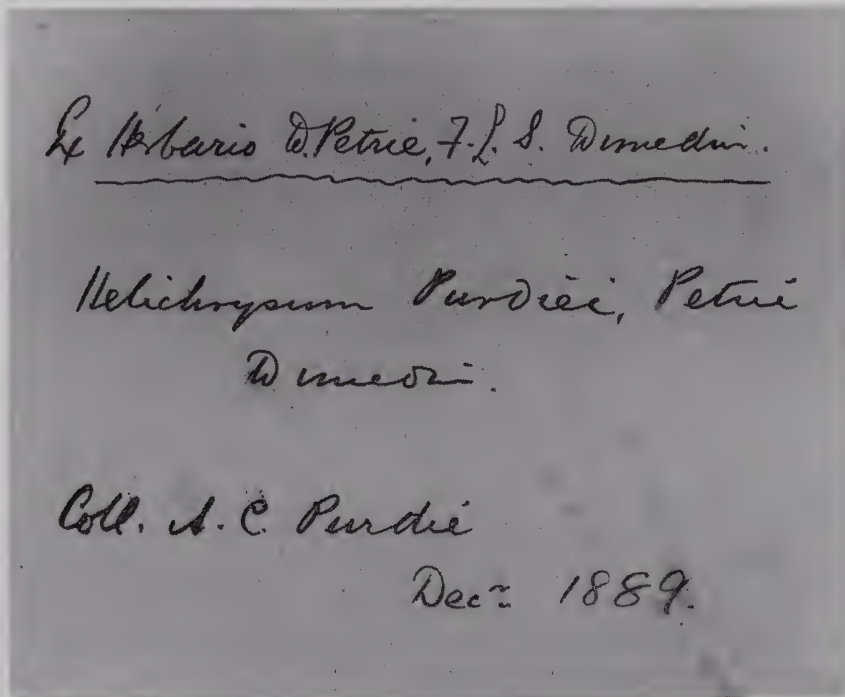 Ex Herbario D. Petrie, F.L.S. Dunedin.
Helichrysum Purdiei, Petrie
Dunedin.
Coll. A. C. Purdie
Decr. 1889.